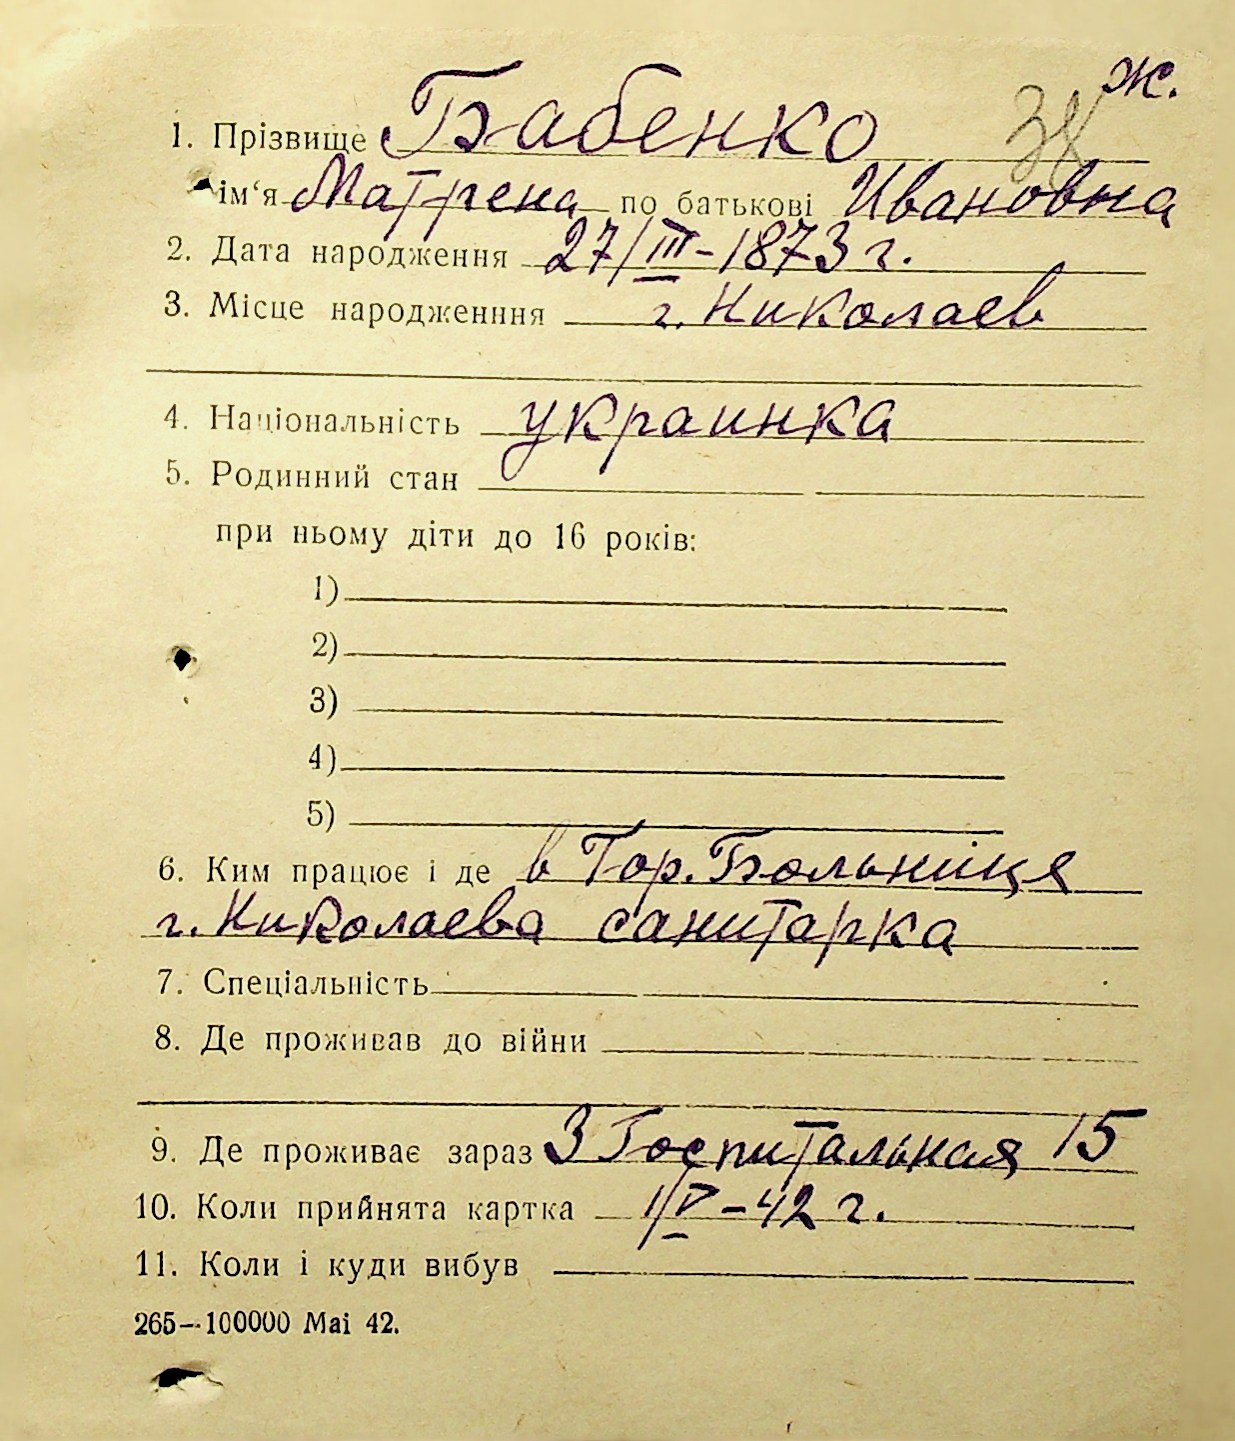 ж.
38
1. Прізвище Бабенко
ім‘я Матрена по батькові Ивановна
2. Дата народження 27/III-1873 г.
3. Місце народженння г. Николаев
4. Національність украинка
5. Родинний стан
при ньому діти до 16 років:
1)
2)
3)
4)
5)
6. Ким працює і де в Гор. Больниця
г. Николаева санитарка
7. Спеціальність
8. Де проживав до війни
9. Де проживає зараз 3 Госпитальная 15
10. Коли прийнята картка 1/V-42 г.
11. Коли і куди вибув
265—100000 Mai 42.